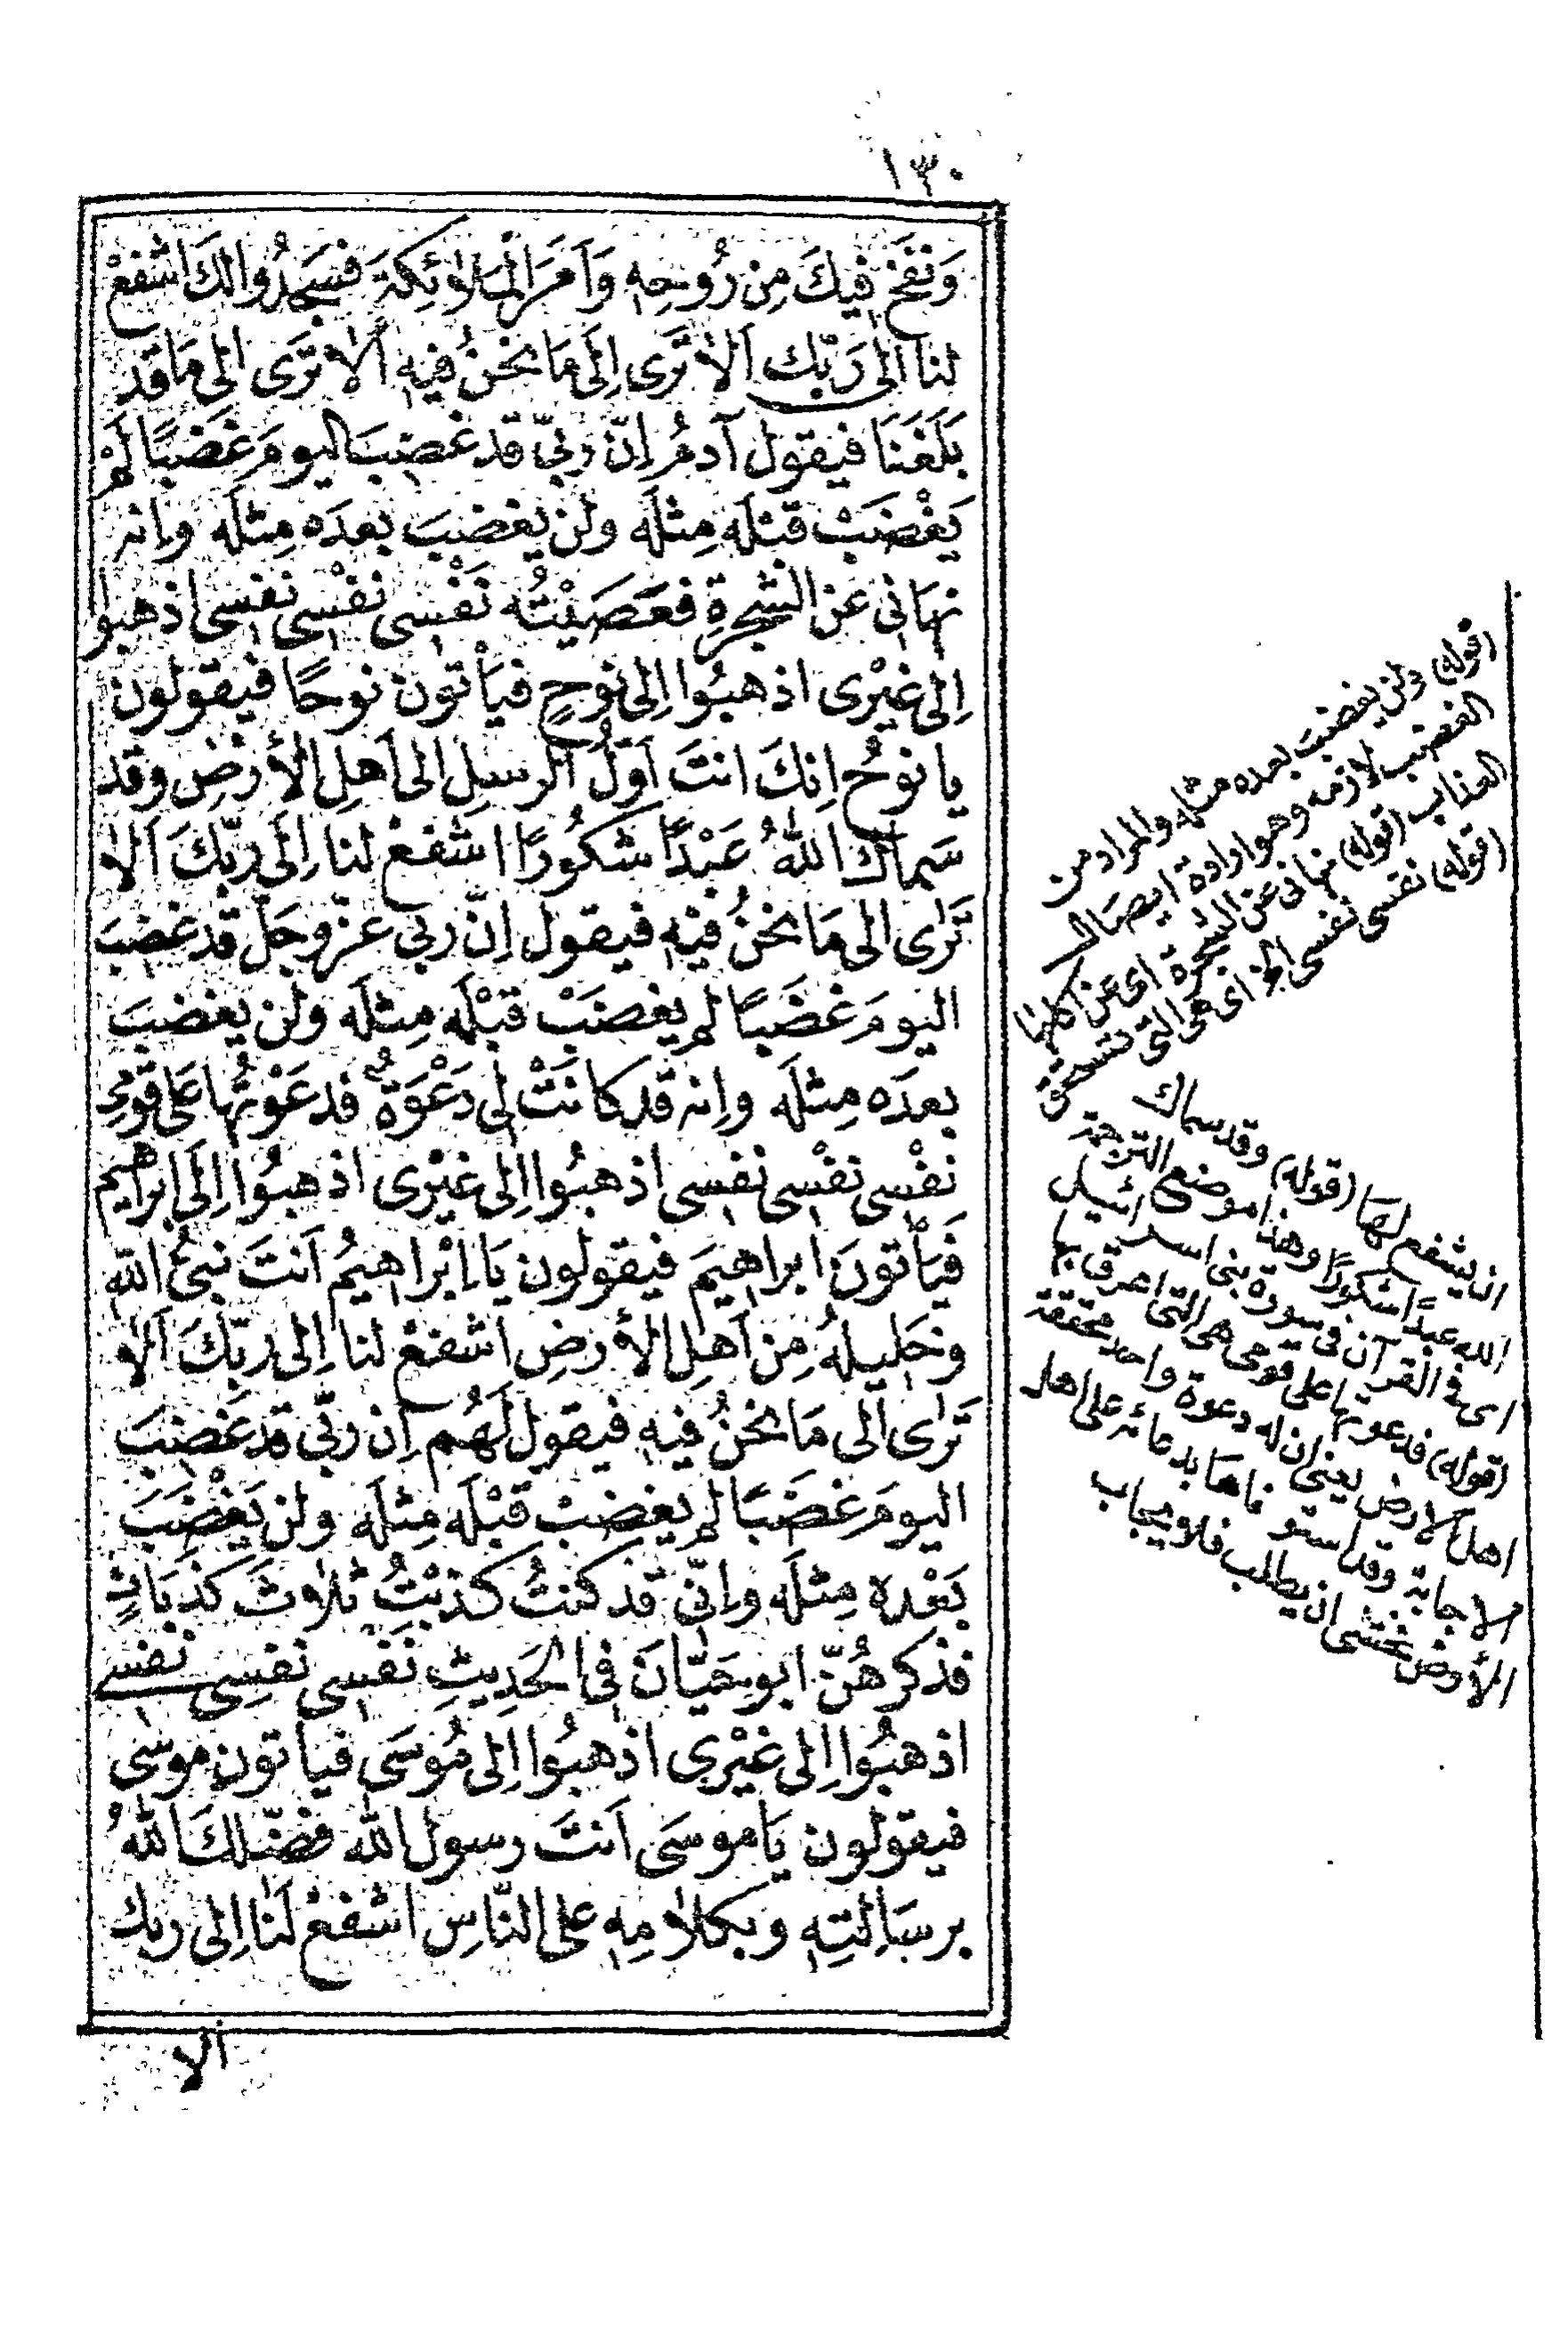 ١٣٠
وَنَفَخَ فِيكَ مِن رُوحِهِ وَاَمَرَ الْمَلَائِكَةَ فَسَجَدُوا لَكَ اشفَعْ
لنا اِلى رَبِّك اَلَا تَرَى اِلَى مَا نَحْنُ فِيهِ اَلَا تَرَى الى مَا قد
بَلَغَنَا فيقول آدمُ اِنّ ربىّ قد غضِبَ اليومَ غَضَبًا لَمْ
يَغْضَبْ قبْلَه مِثلَه ولن يغضبَ بعدَه مِثلَه وانه
نهَانى عَن الشجرةِ فَعَصَيْتُه نَفْسى نفْسى نفسى اذهبوا
اِلى غيْرى اذهبُوا اِلى نُوحٍ فيَأتون نوحًا فيقولون
يا نوحُ اِنكَ انتَ اَوّلُ الرسلِ الى اَهلِ الأرضِ وقد
سَماكَ اللهُ عَبْدًا شكُورًا اشفعْ لنا اِلَى ربّكَ اَلَا
تَرٰى الى مَا نحنُ فيْهِ فيقول اِنّ ربى عزّ وجَلّ قد غضبَ
اليومَ غضَبًا لم يغضَبْ قبْلَه مِثلَه ولن يغضبَ
بعدَه مِثلَه واِنه قد كانَتْ لى دَعْوَةٌ فدعَوْتُها عَلى قوْمِى
نفْسى نفْسى نفسى اذهبُوا اِلى غيْرى اذهبُوا اِلَى اِبراهيم
فيَأتونَ ابراهِيمَ فيقولون يَا اِبْراهِيمُ اَنتَ نبىُّ الله
وخليلهُ مِن اَهلِ الأرضِ اشفعْ لنا اِلى ربّكَ اَلَا
تَرٰى الى مَا نحنُ فيهِ فيقول لَهُم اِن ربّى قد غَضبَ
اليومَ غضَبًا لم يغضبْ قبْلَه مِثلَه ولن يَغْضَبَ
بَعْدَه مِثلَه وانّى قد كنتُ كذبْتُ ثلاثَ كذبَاتٍ
فذكرهُنّ ابو حَيّانَ فى الحَدِيثِ نَفسِى نفسِى نفسِى
اذهبُوا اِلى غيْرى اذهبُوا اِلى مُوسَى فيأتون موسى
فيقولون يَا موسَى اَنتَ رسول الله فضّلكَ اللهُ
برسَالتِهِ وبكلامِهِ على النّاسِ اشفعْ لَنا اِلى ربك
اَلا
(قوله) ولن يغضب بعده مثله والمراد من
الغضب لازمه وهو ارادة ايصال
العذاب (قوله) نهانى عن الشجرة اى عن اكلها
(قوله) نفسى نفسى الخ اى هى التى تستحق
ان يشفع لها (قوله) وقد سماك
الله عبدًا شكورًا وهذا موضع الترجمة
اى فى القرآن فى سورة بنى اسرائيل
(قوله) فدعوتها على قومى هى التى اغرق بها
اهل الارض يعنى ان له دعوة واحد محققة
الاجابة وقد استوفاها بدعائه على اهل
الأرض فخشى ان يطلب فلا يجاب